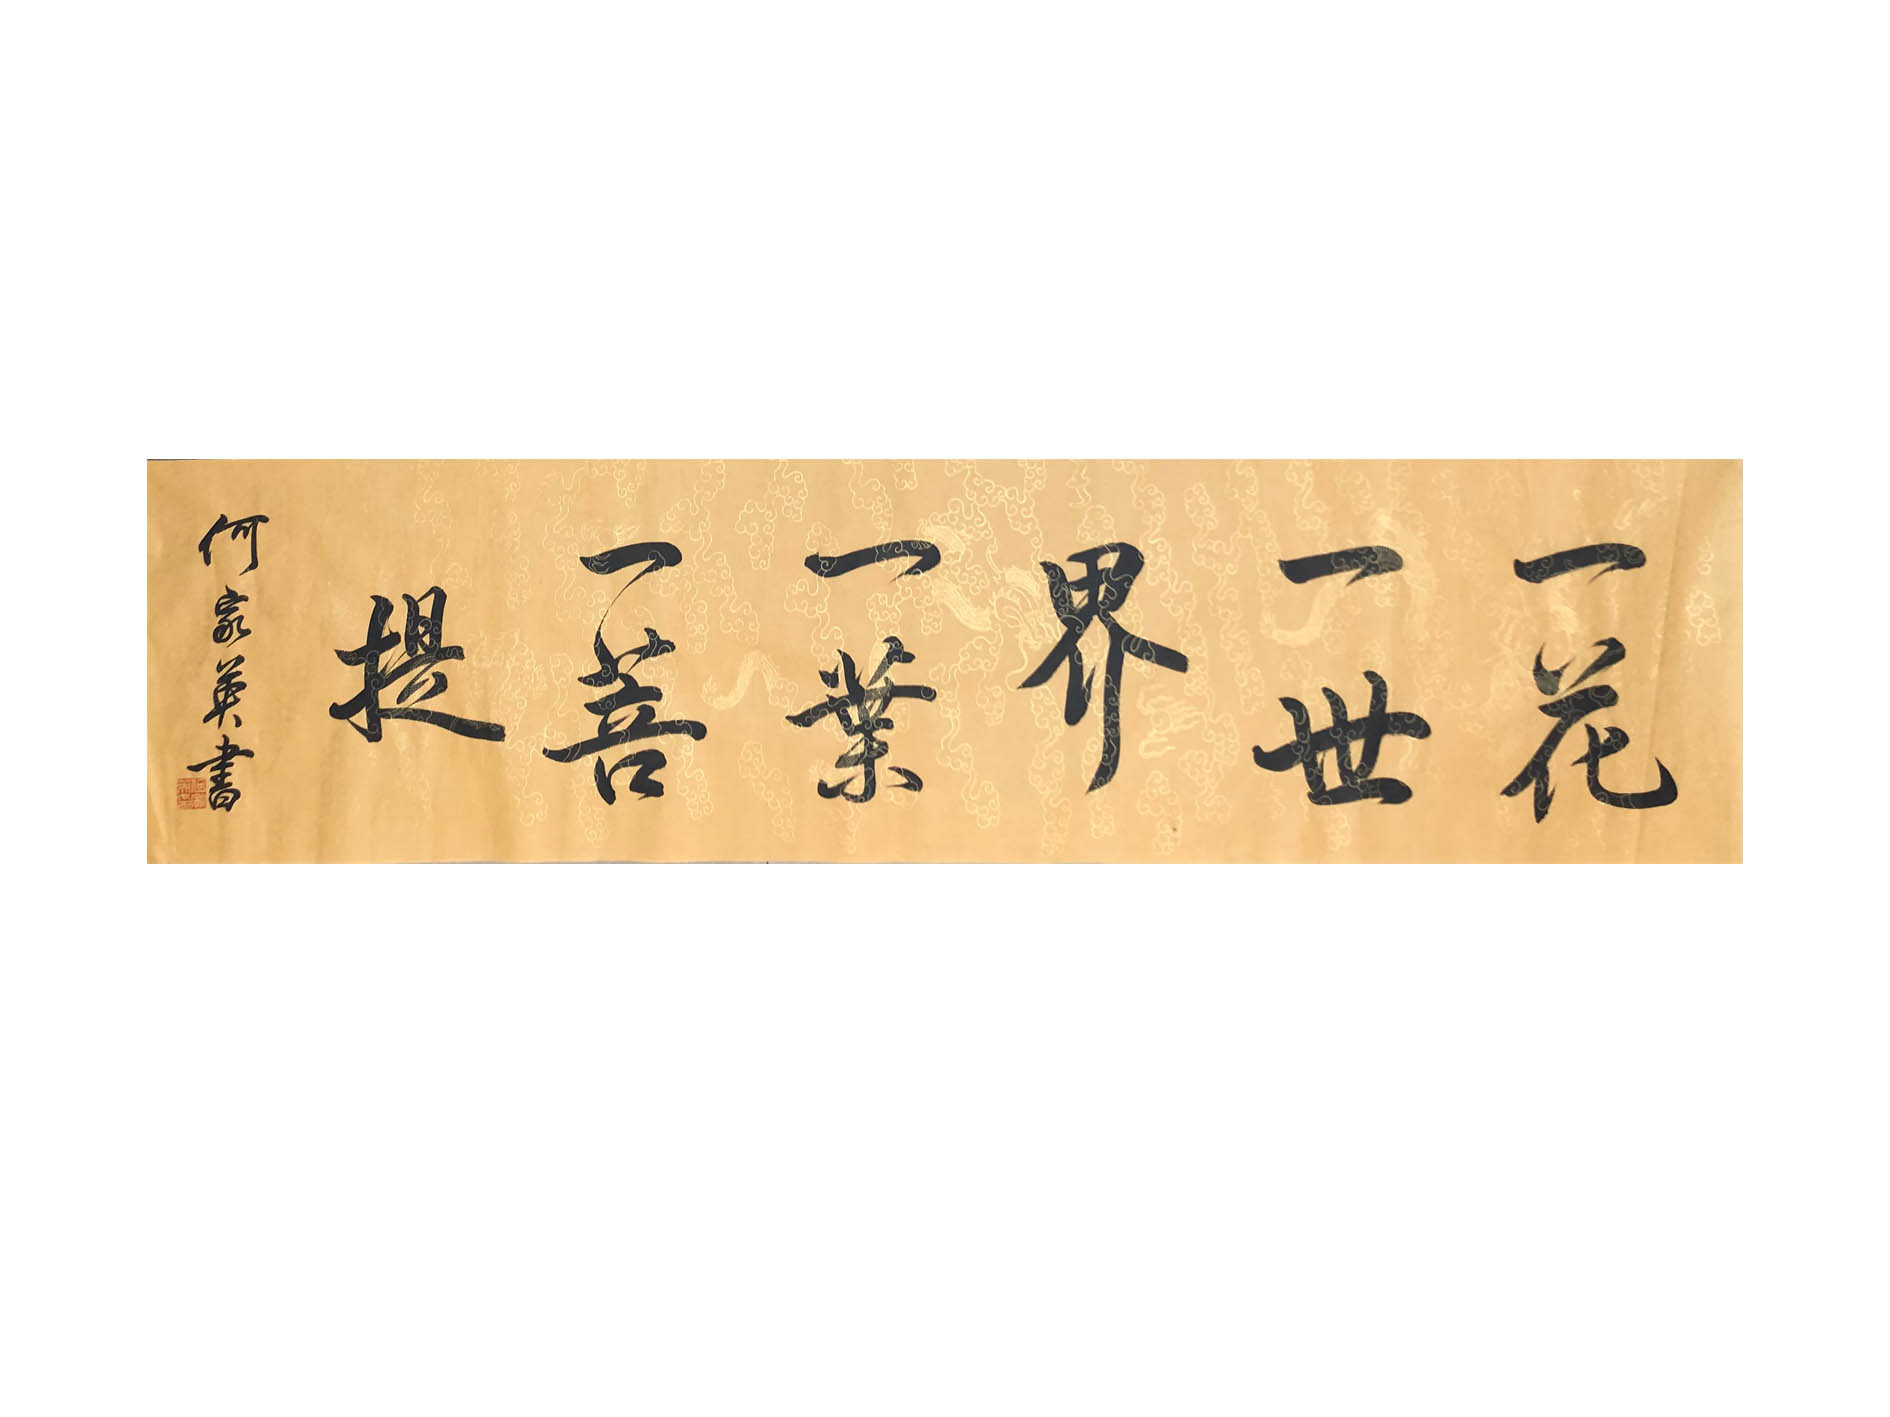 一花
一世
界
一葉
一菩
提
何家英書